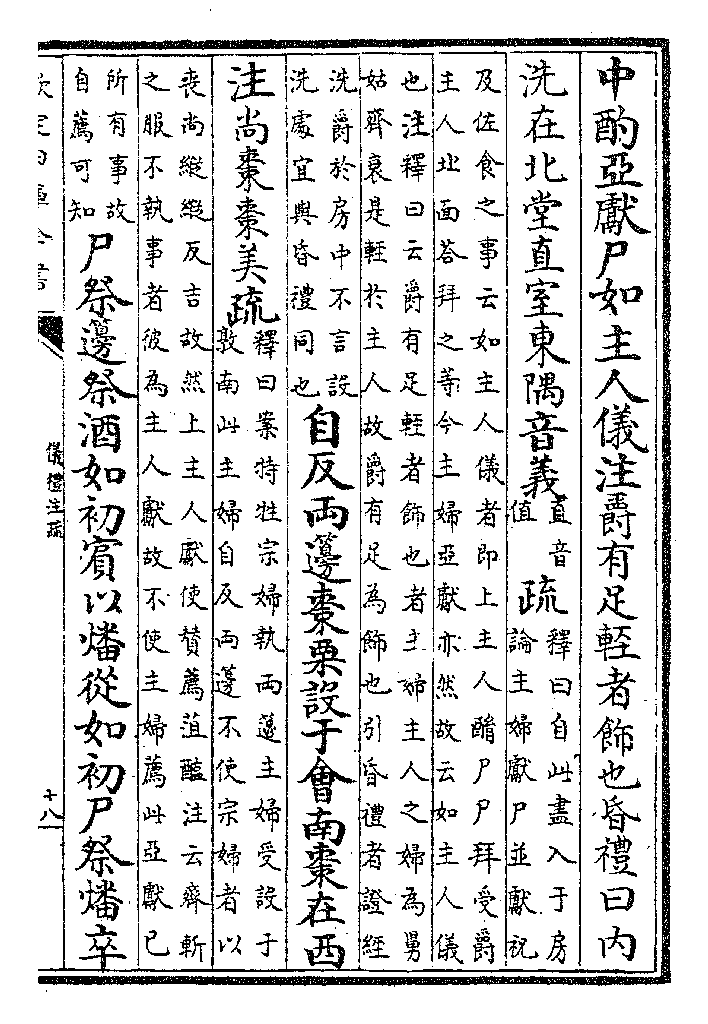 中酌亞獻尸如主人儀注爵有足輊者飾也昏禮曰内
洗在北堂直室東隅音義
直音
值
疏
釋曰自此盡入于房
論主婦獻尸並獻祝
及佐食之事云如主人儀者即上主人酳尸尸拜受爵
主人北面荅拜之等今主婦亞獻亦然故云如主人儀
也注釋曰云爵有足輊者飾也者主婦主人之婦為舅
姑齊衰是輊於主人故爵有足為飾也引昏禮者證經
洗爵於房中不言設
洗處宜與昏禮同也
自反兩籩棗栗設于會南棗在西
注尚棗棗美疏
釋曰案特牲宗婦執兩籩主婦受設于
敦南此主婦自反兩籩不使宗婦者以
喪尚縱縱反吉故然上主人獻使贊薦菹醢注云齊斬
之服不執事者彼為主人獻故不使主婦薦此亞獻已
所有事故
自薦可知
尸祭籩祭酒如初賓以燔從如初尸祭燔卒
欽定四庫全書
儀禮注疏
十八